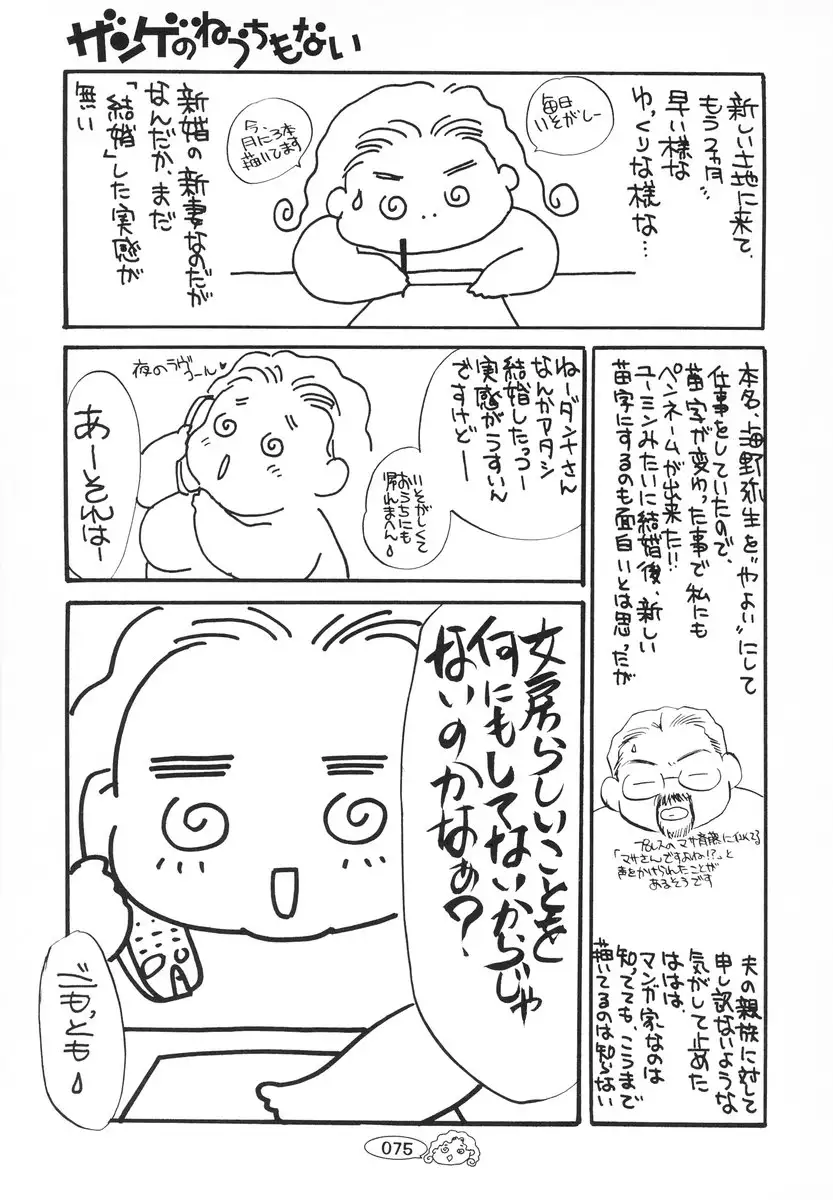 ザンゲのねうちもない
新しい土地に来て、
もう2ヵ月
早い様な
ゆっくりな様な…
毎日
いそがしー
今、
月に3本
描いてます
新婚の新妻なのだが
なんだか、まだ
「結婚」した実感が
無い
本名、上野弥生を"やよい"にして
仕事をしていたので、
苗字が変わった事で私にも
ペンネームが出来た!!
ユーミンみたいに結婚後、新しい
苗字にするのも面白いとは思ったが
プロレスのマサ斉藤に似てる
「マサさんですよね!?」と
声をかけられたことが
あるそうです
夫の親族に対して
申し訳ないような
気がして止めた
ははは、
マンガ家なのは
知ってても、こうまで
描いてるのは知らない
ねーダンナさん
なんかアタシ
結婚したっつー
実感がうすいん
ですけどー
いそがしくて
おうちにも
帰れまへん
夜のラヴ
コーん♥
あーそれはー
女房らしいことを
何にもしてないからじゃ
ないのかなぁ?
ごもっとも
075